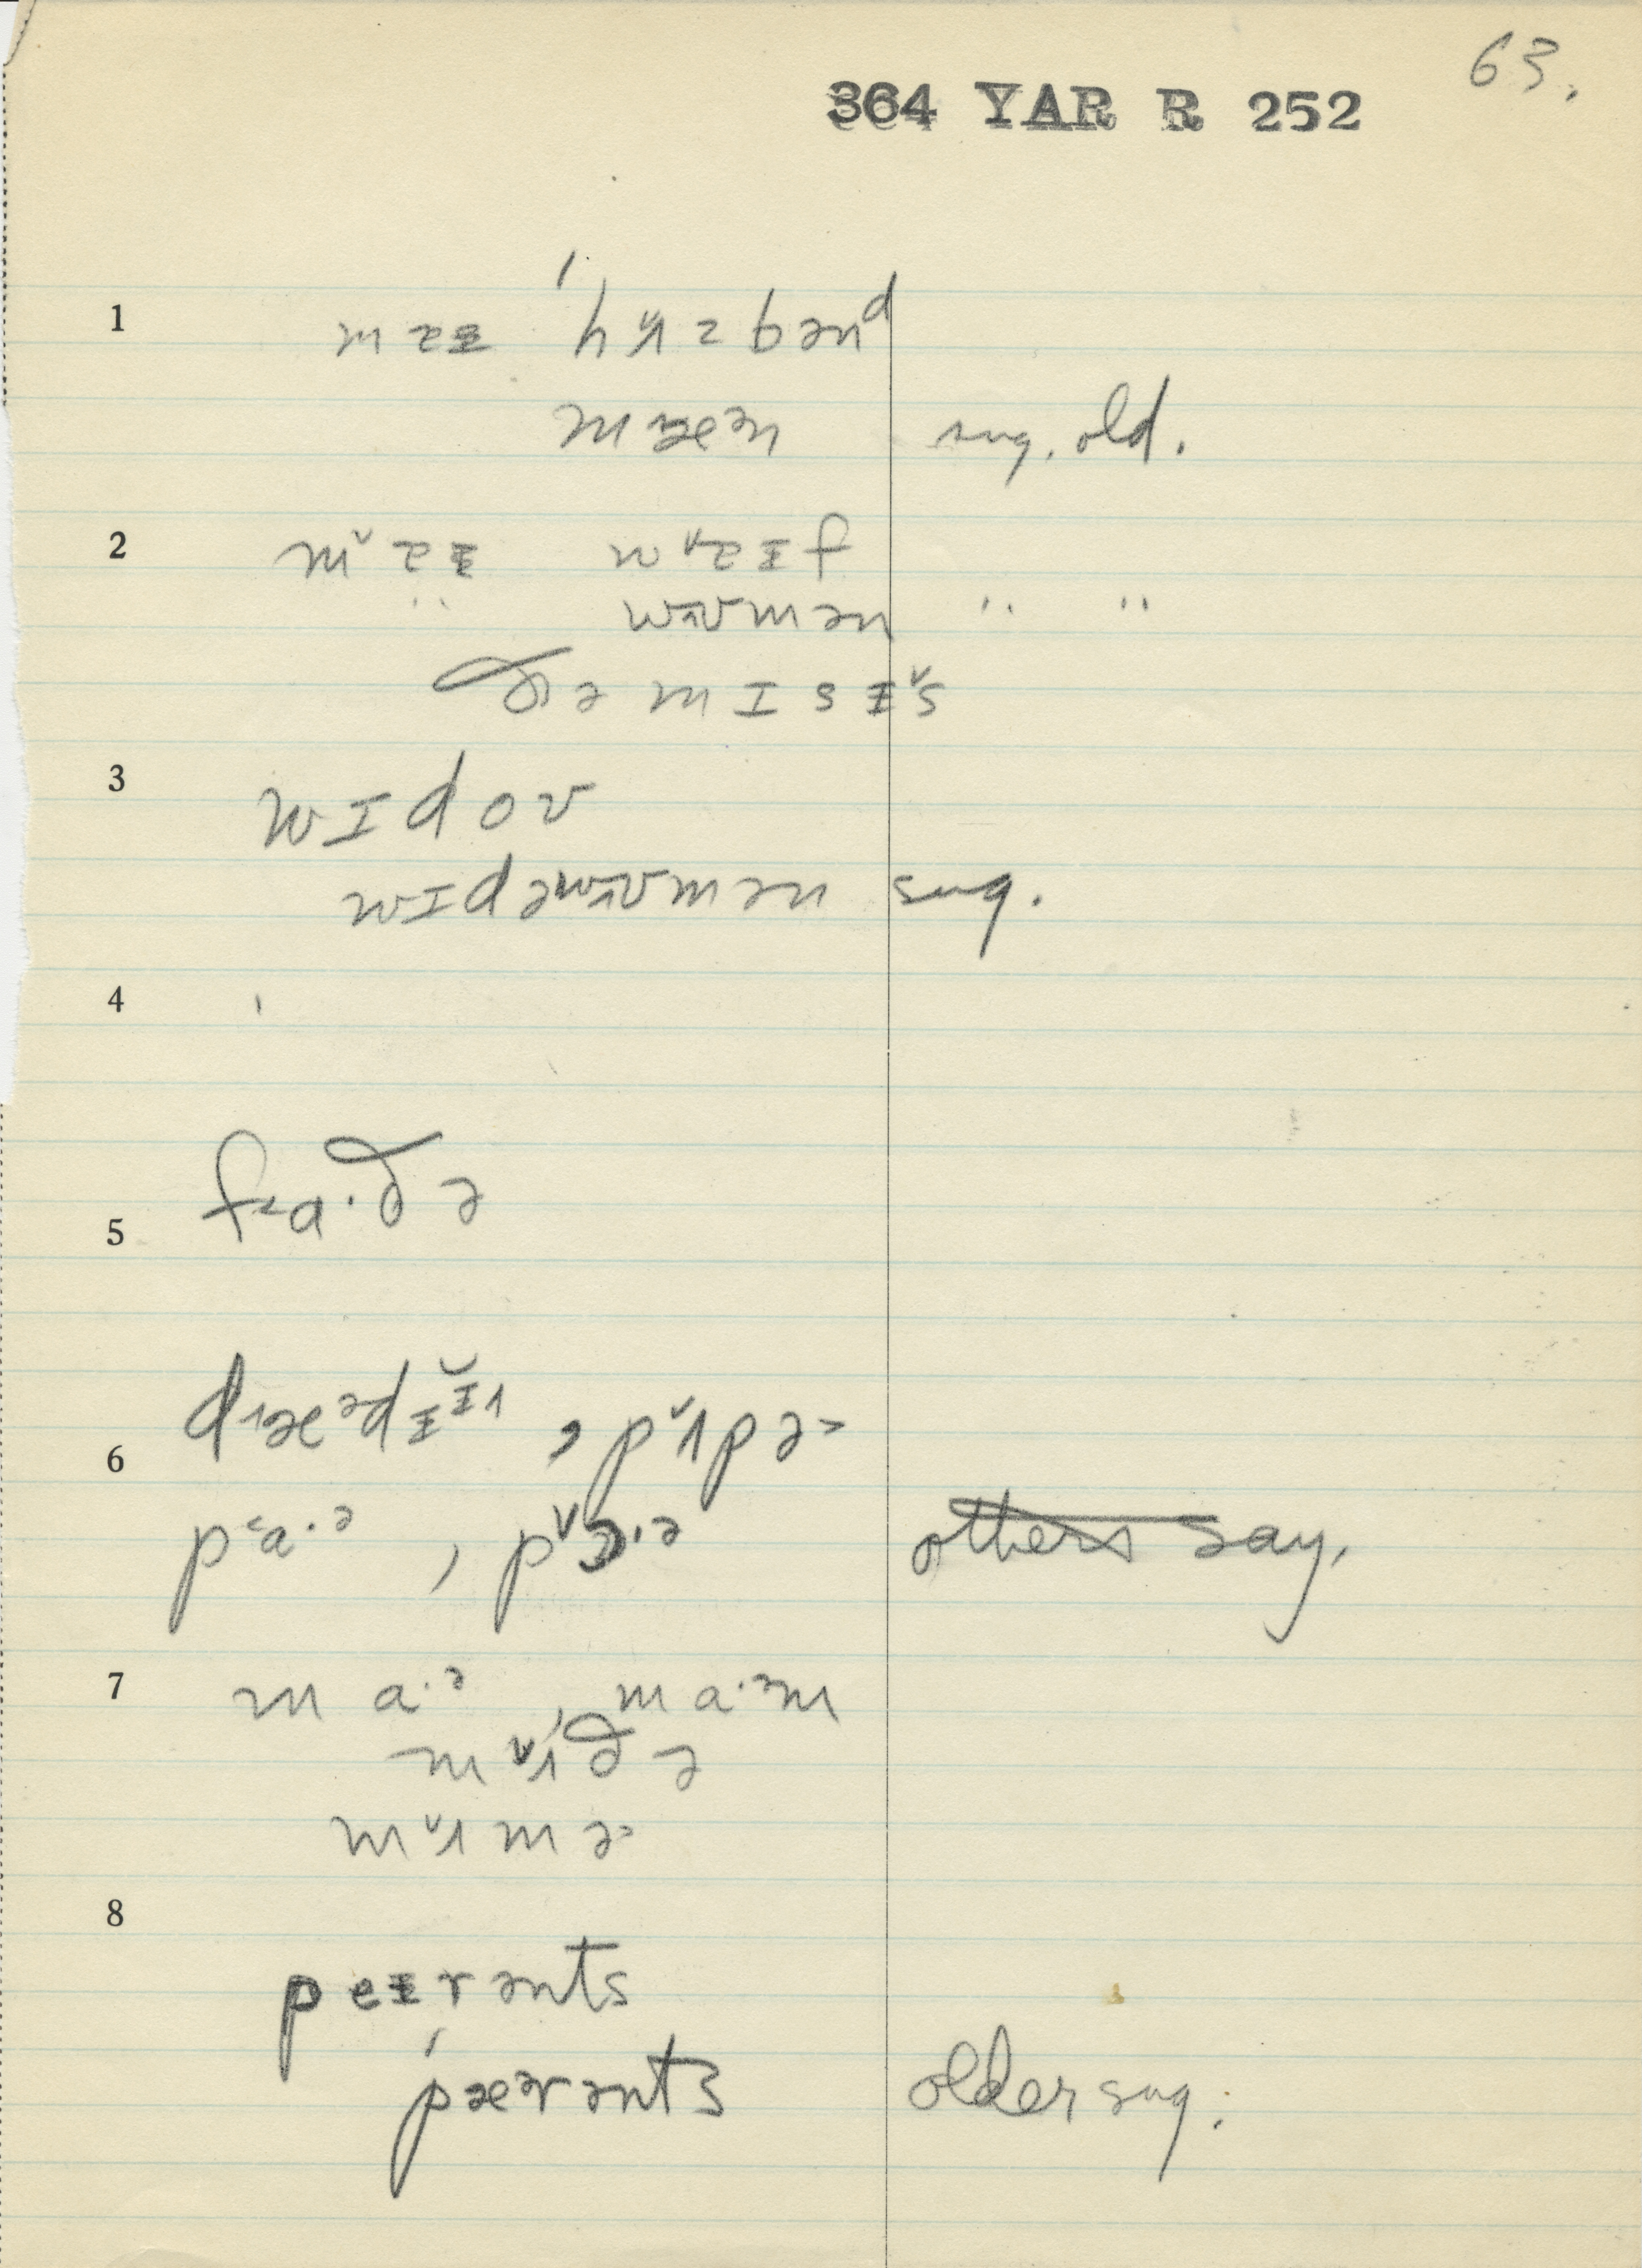 63.
364 YAR R 252
1 mɐɪ 'hʌzbənd
mæən sug. old.
2 mɐɪ wɐɪf
" wʊmən " "
ðə mɪsɪs
3 wɪdoʊ
wɪdəwʊmən sug.
4
5 fa·ðə
6 dæədɪɪ, pʌpə
pa·ə, pɔ·ə others say.
7 ma·ə, ma·əm
mʌðə
mʌmə
8 peɪrənts
pæərənts older sug.